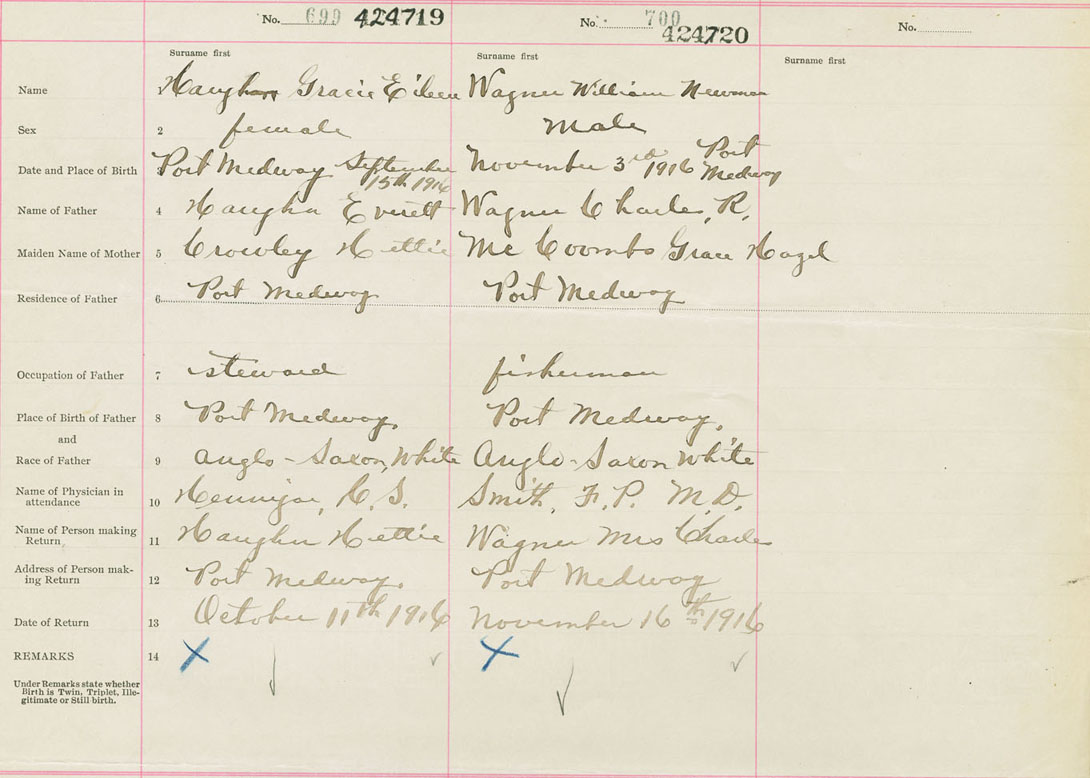 No. 699 424719 No. 700 424720 No.
Surname first Surname first Surname first
Name Gracie Eileen Wagner William Newman
Sex 2 female Male
Date and Place of Birth 3 Port Medway September 15th 1916 November 3rd 1916 Port Medway
Name of Father 4 Haughn Everett Wagner Charles, R.
Maiden Name of Mother 5 Crowley Hettie Mc Coombs Grace Hazel
Residence of Father 6 Port Medway Port Medway
Occupation of Father 7 steward fisherman
Place of Birth of Father 8 Port Medway, Port Medway,
and
Race of Father 9 Anglo-Saxon, White Anglo-Saxon White
Name of Physician in
attendance 10 Hennigar, C. S. Smith, F. P. M.D.
Name of Person making
Return 11 Haughn Hettie Wagner Mrs Charles
Address of Person mak-
ing Return 12 Port Medway. Port Medway
Date of Return 13 October 11th 1916 November 16th 1916
REMARKS 14 X X
Under Remarks state whether
Birth is Twin, Triplet, Ille-
gitimate or Still birth.